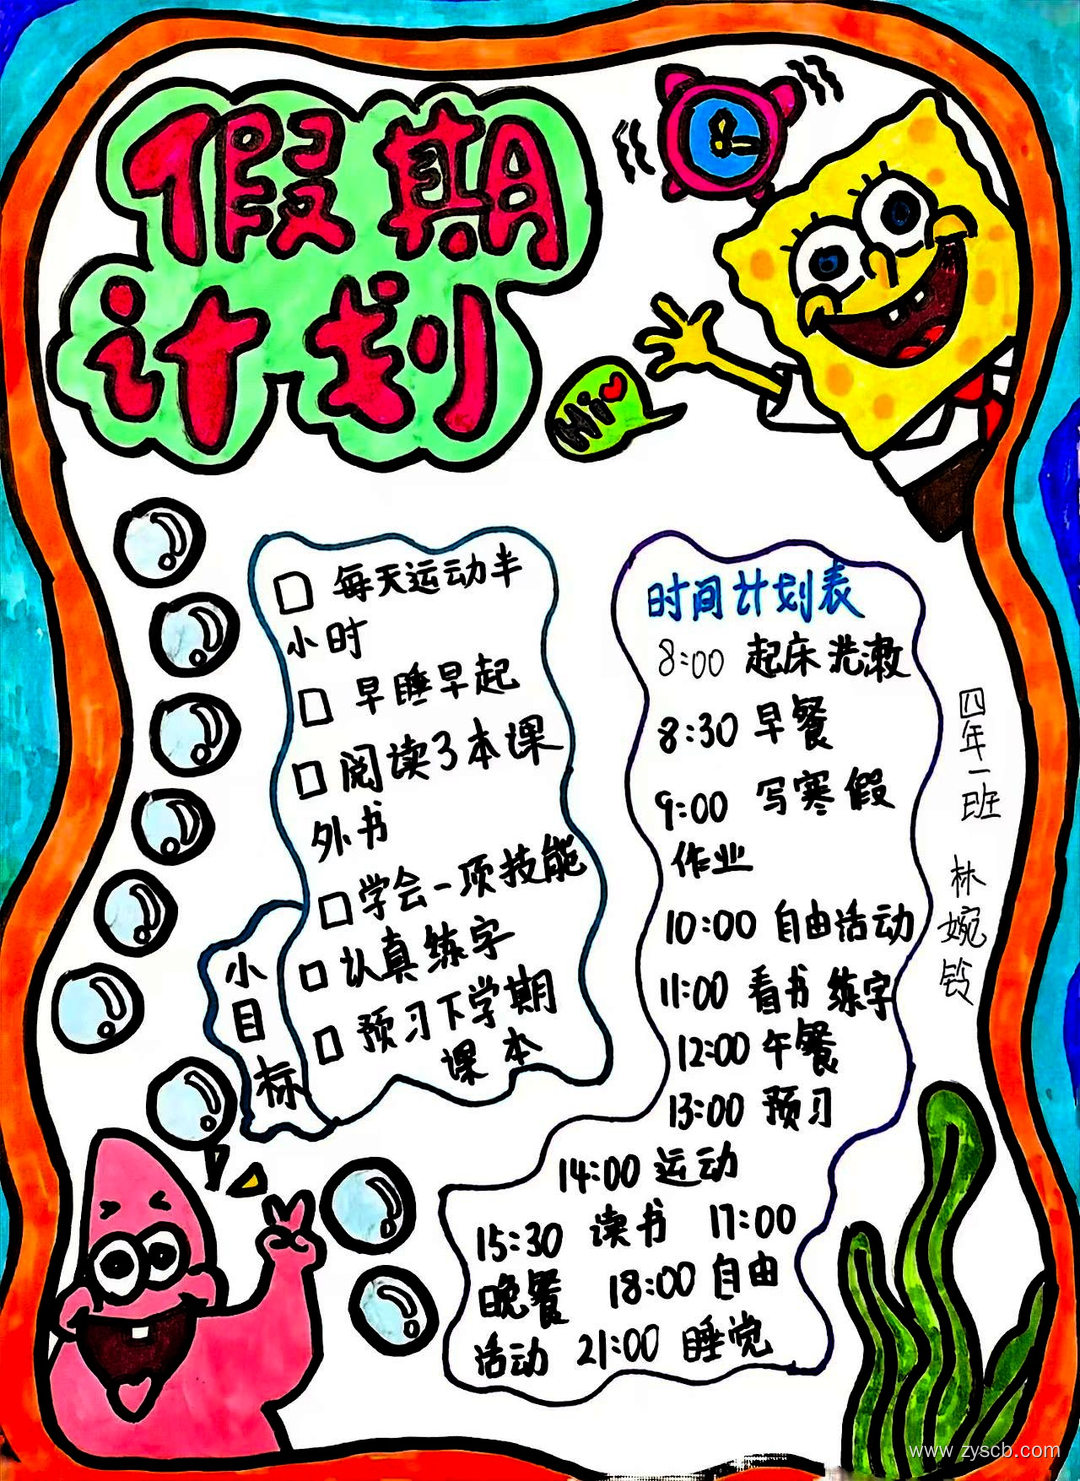 假期
计划
8
Hi
□ 每天运动半
小时
□ 早睡早起
□ 阅读3本课
外书
□ 学会一项技能
□ 认真练字
□ 预习下学期
课本
小目标
时间计划表
8:00 起床洗漱
8:30 早餐
9:00 写寒假
作业
10:00 自由活动
11:00 看书 练字
12:00 午餐
13:00 预习
14:00 运动
15:30 读书 17:00
晚餐 18:00 自由
活动 21:00 睡觉
四年一班 林婉铃
www.zyscb.com